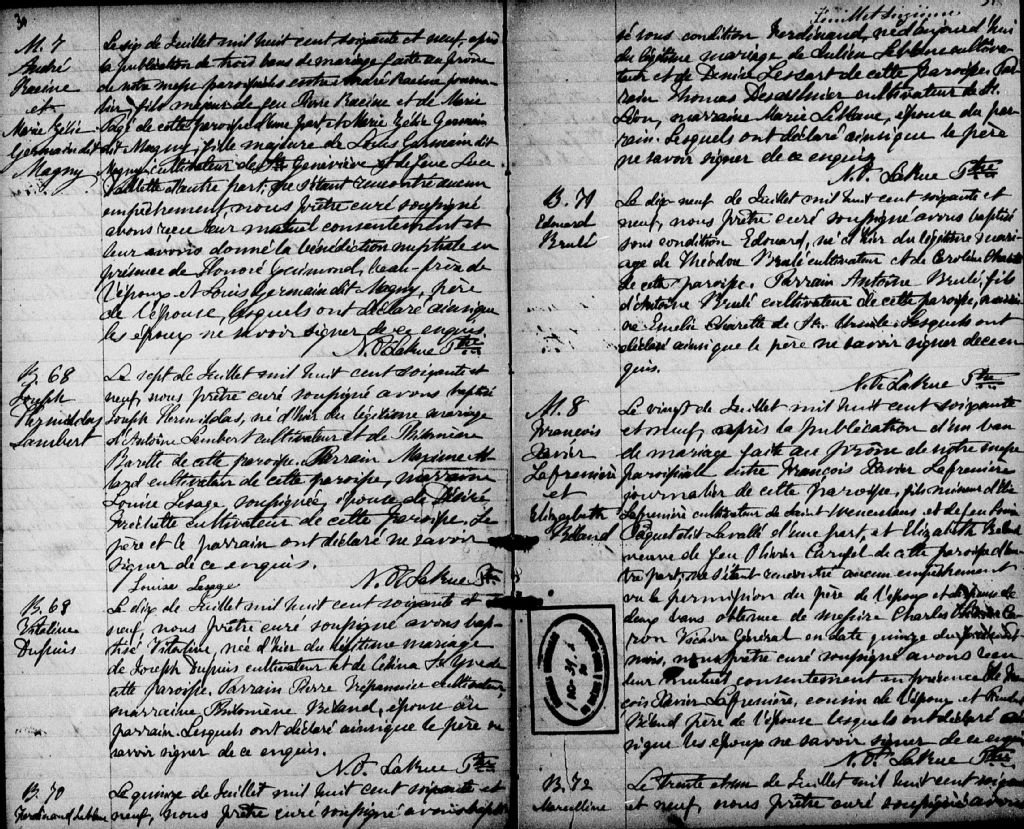 M. 7
André
Racine
et
Marie Zélie
Germain dit
Magny
Le six de Juillet mil huit cent soixante et neuf, après
la publication de trois bans de mariage faite au prône
de notre messe paroissiale entre André Racine journa-
lier, fils majeur de feu Pierre Racine et de Marie
Pagé de cette paroisse d'une part, et Marie Zélie Germain
dit Magny, fille majeure de Louis Germain dit
Magny cultivateur de Ste Geneviève et de feue Luce
d'autre part; ne s'étant rencontré aucun
empêchement, nous prêtre curé soussigné
avons reçu leur mutuel consentement et
leur avons donné la bénédiction nuptiale en
présence de Honoré Guimond, beau-frère de
l'époux et Louis Germain dit Magny, père
de l'épouse, lesquels ont déclaré ainsi que
les époux ne savoir signer de ce enquis
N. O. LaRue Ptre
B. 68
Joseph
Hermildas
Lambert
Le sept de Juillet mil huit cent soixante et
neuf, nous prêtre curé soussigné avons baptisé
Joseph Hermildas, né d'hier du légitime mariage
d'Antoine Lambert cultivateur et de Philomène
Barette de cette paroisse. Parrain Maxime
cultivateur de cette paroisse, marraine
Louise Lesage soussignée, épouse de Désiré
cultivateur de cette paroisse. Le
père et le parrain ont déclaré ne savoir
signer de ce enquis.
Louise Lesage N. O. LaRue Ptre
B. 68
Vitaline
Dupuis
Le dix de Juillet mil huit cent soixante et
neuf, nous prêtre curé soussigné avons bap-
tisé Vitaline, née d'hier du légitime mariage
de Joseph Dupuis cultivateur et de Célina St Yves de
cette paroisse, Parrain Pierre Trépannier cultivateur,
marraine Philomène Béland, épouse du
parrain. Lesquels ont déclaré ainsi que le père ne
savoir signer de ce enquis.
N. O. LaRue Ptre
B. 70
Ferdinand Leblanc
Le quinze de Juillet mil huit cent soixante et
neuf, nous prêtre curé soussigné avons bapti
feuillet sixième
sé sous condition Ferdinand, né d'aujourd'hui
du légitime mariage de Julien Leblanc cultiva-
teur et de Denise Lessart de cette paroisse. Par-
rain Thomas cultivateur de St.
Léon, marraine Marie Leblanc, épouse du par-
rain. Lesquels ont déclaré ainsi que le père
ne savoir signer de ce enquis
N. O. LaRue Ptre
B. 71
Edouard
Brulé
Le dix neuf de Juillet mil huit cent soixante et
neuf, nous prêtre curé soussigné avons baptisé
sous condition Edouard, né d'hier du légitime mari-
age de Théodore Brulé cultivateur et de Caroline
de cette paroisse. Parrain Antoine Brulé, fils
d'Antoine Brulé cultivateur de cette paroisse, marrai-
ne Emélie Charette de St. Ursule; Lesquels ont
déclaré ainsi que le père ne savoir signer de ce en-
quis.
N. O. LaRue Ptre
M. 8
François
Xavier
Lafrenière
et
Elizabeth
Béland
Le vingt de Juillet mil huit cent soixante
et neuf, après la publication d'un ban
de mariage faite au prône de notre messe
paroissiale entre François Xavier Lafrenière
journalier de cette paroisse, fils mineur d'
Lafrenière cultivateur de Saint Wenceslas et de feue
Paquet dit Lavallé d'une part, et Elizabeth Béland
veuve de feu Olivier Carufel de cette paroisse d'au-
tre part; ne s'étant rencontré aucun empêchement
vu la permission du père de l'époux et dispense de
deux bans obtenue de messire Charles Ca-
ron Vicaire Général en date quinze du présent
mois, nous prêtre curé soussigné avons reçu
leur mutuel consentement en présence de Fran-
çois Xavier Lafrenière, cousin de l'époux et
Béland père de l'épouse lesquels ont déclaré ain-
si que les époux ne savoir signer de ce enquis
N. O. LaRue Ptre
B. 72
Marcelline
Le trente et un de Juillet mil huit cent soixante
et neuf, nous prêtre curé soussigné avons